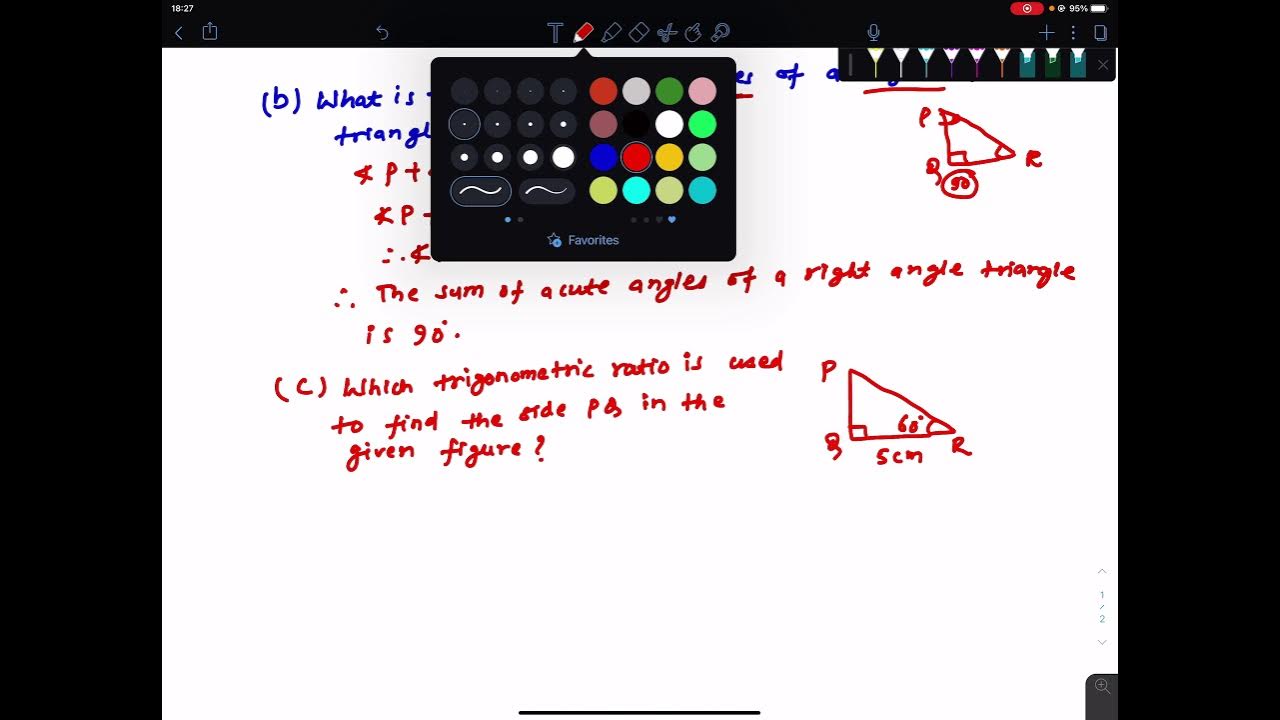 18:27
95%
T
(b) What is
es of a
triangl
P
Q
R
90°
∠P +
∠P
Favorites
∴ ∠
∴ The sum of acute angles of a right angle triangle
is 90°.
(c) Which trigonometric ratio is used
to find the side PQ in the
given figure?
P
60°
Q
R
5cm
1
/
2